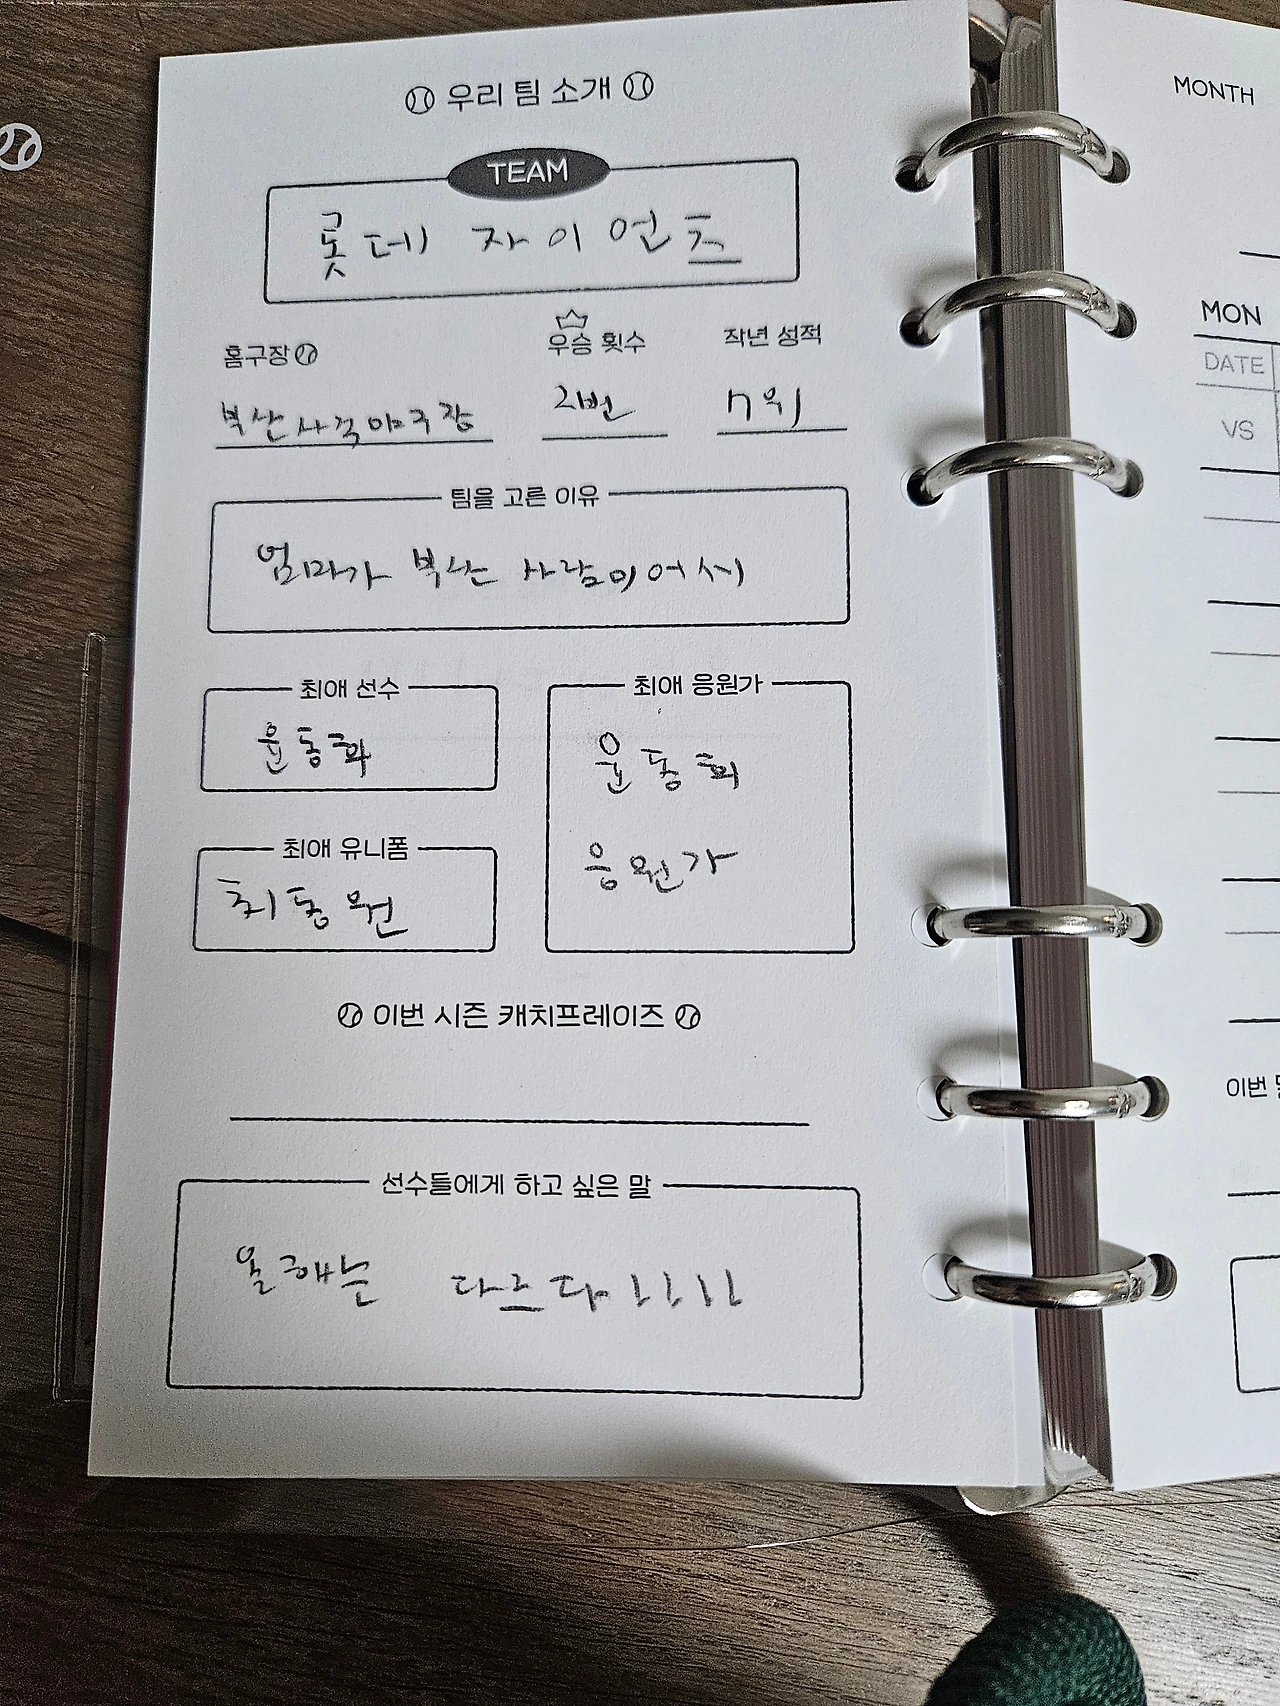 우리 팀 소개
TEAM
롯데 자이언츠
홈구장
우승 횟수
작년 성적
부산사직야구장
2번
7위
팀을 고른 이유
엄마가 부산 사람이어서
최애 선수
윤동희
최애 응원가
윤동희
응원가
최애 유니폼
최동원
이번 시즌 캐치프레이즈
선수들에게 하고 싶은 말
올해는 다르다!!!!
MONTH
MON
DATE
VS
이번